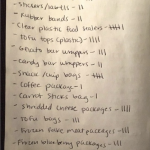 - stickers/labels - ||
- Rubber bands - ||
- Clear plastic food boxes - ||||
- Tofu tops (plastic) - |||
- Granola bar wrappers - |||
- Candy bar wrappers - ||
- Snack/chip bags - ||||
- Coffee package - |
- Carrot sticks bag - |
- Shredded cheese packages - ||||
- Tofu bags - |||
- Frozen fake meat packages - |||
- Frozen blueberry packages - |||